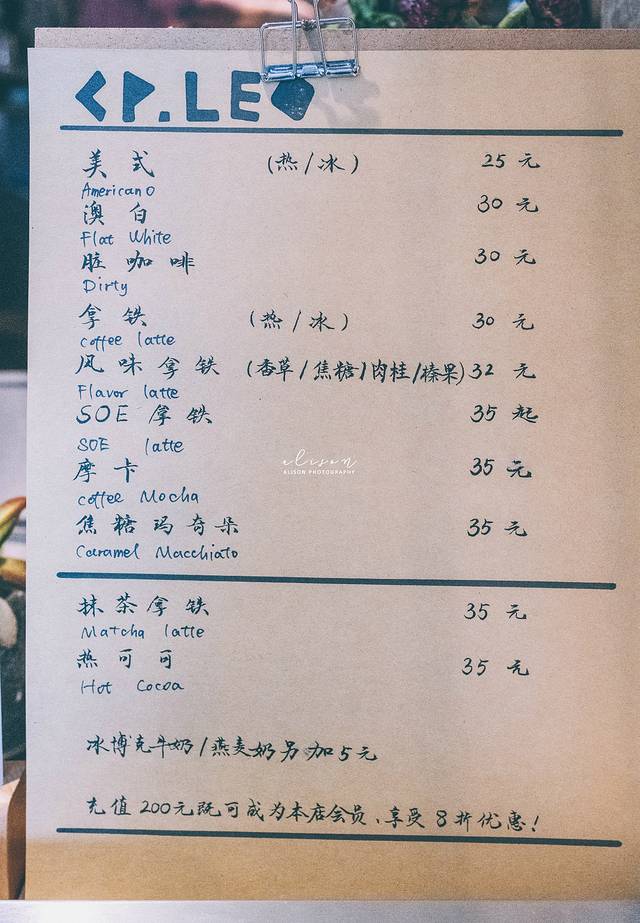 CP.LEO
美式 (热/冰) 25元
Americano
澳白 30元
Flat White
脏咖啡 30元
Dirty
拿铁 (热/冰) 30元
coffee latte
风味拿铁 (香草/焦糖/肉桂/榛果) 32元
Flavor latte
SOE 拿铁 35起
SOE latte
摩卡 35元
coffee Mocha
焦糖玛奇朵 35元
Caramel Macchiato
alison
ALISON PHOTOGRAPHY
抹茶拿铁 35元
Matcha latte
热可可 35元
Hot Cocoa
冰博克牛奶/燕麦奶另加5元
充值200元既可成为本店会员、享受8折优惠!